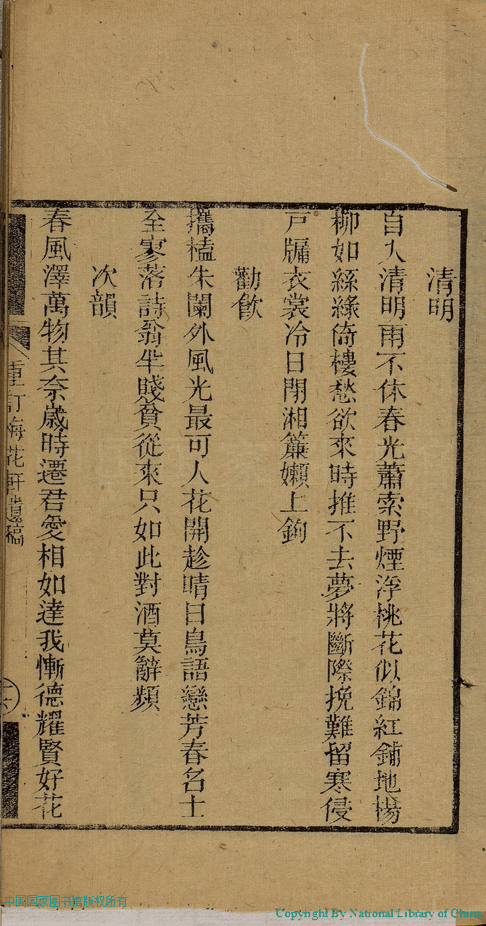 清明
自入清明雨不休春光蕭索野煙浮桃花似錦紅鋪地楊
柳如絲綠倚樓愁欲來時推不去夢將斷際挽難留寒侵
戸牖衣裳冷日閉湘簾嬾上鉤
勸飲
攜榼朱闌外風光最可人花開趁晴日鳥語戀芳春名士
全寥落詩翁半賤貧從來只如此對酒莫辭頻
次韻
春風澤萬物其奈歲時遷君愛相如達我慚德耀賢好花
重訂梅花軒遺稿
中国国家图书馆版权所有
Copyright By National Library of China